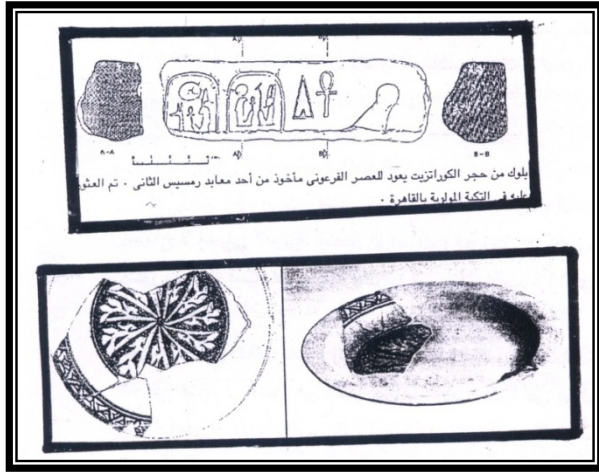 A-A
B-B
بلوك من حجر الكوراتزيت يعود للعصر الفرعونى مأخوذ من أحد معابد رمسيس الثانى . تم العثور
عليه فى التكية المولوية بالقاهرة .